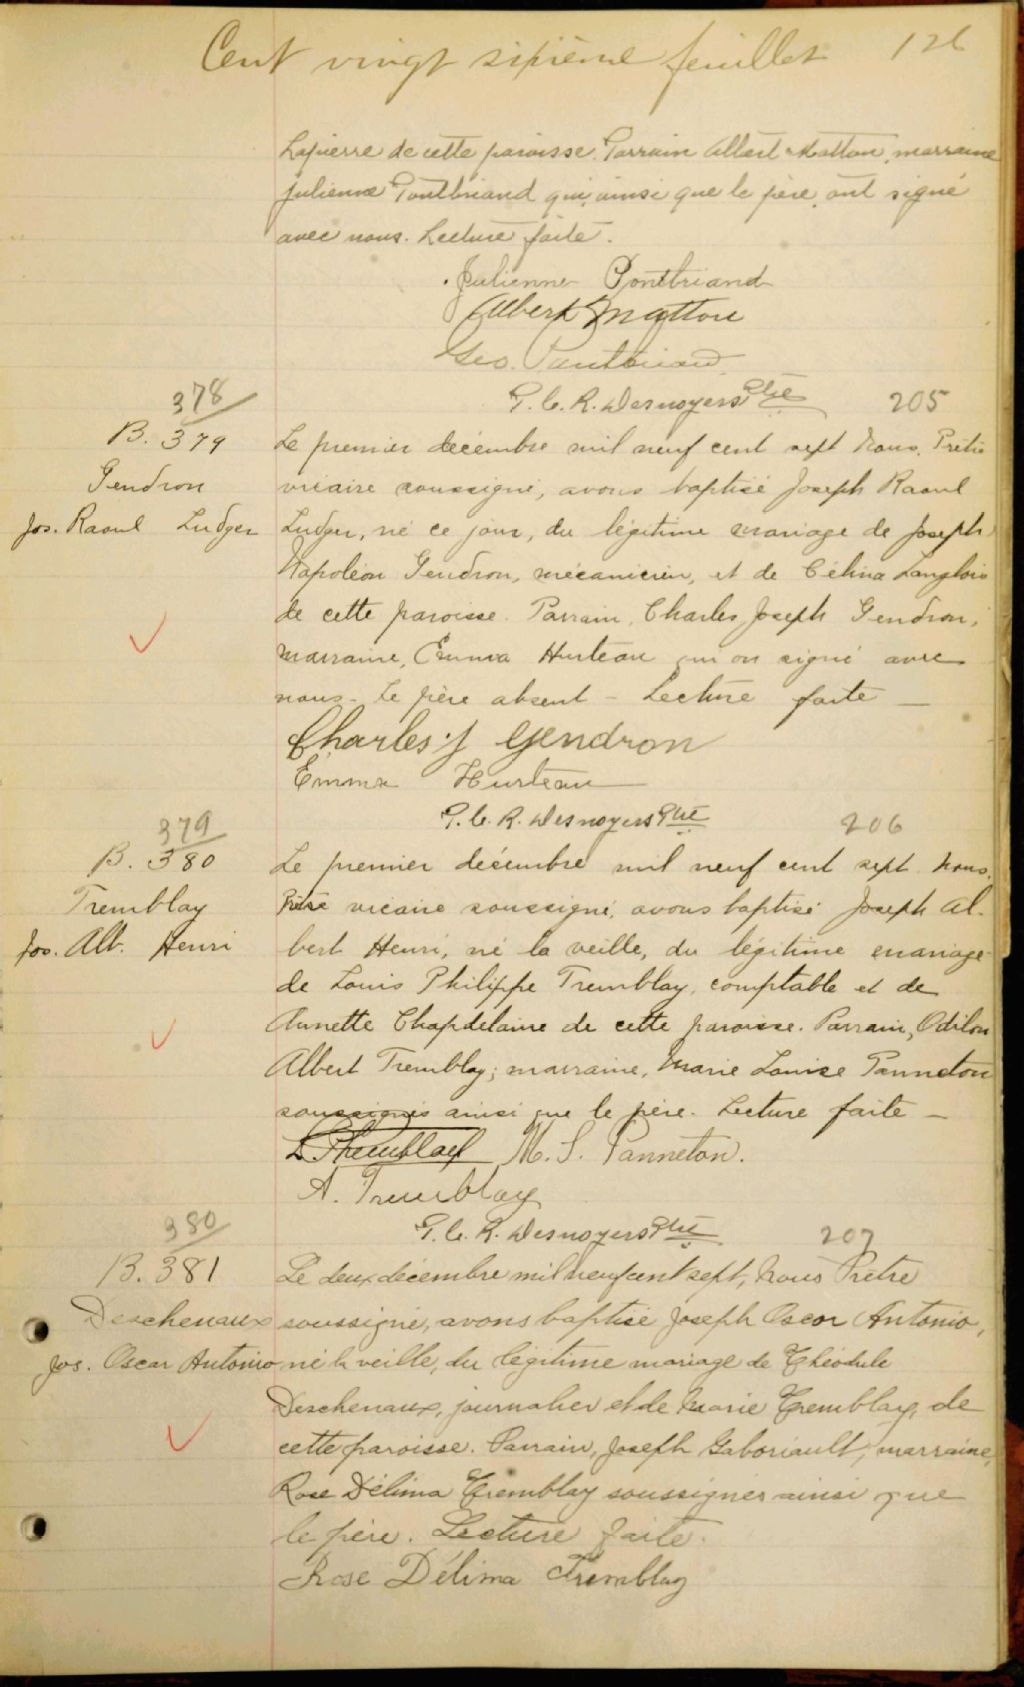 Cent vingt sixième feuillet 126
Lapierre de cette paroisse. Parrain Albert Matton, marraine
Julienne Pontbriand qui, ainsi que le père, ont signé
avec nous. Lecture faite.
Julienne Pontbriand
Albert Matton
Geo. Pontbriand
G. C. R. Desnoyers Ptre
205
378
B. 379
Gendron
Jos. Raoul Ludger
Le premier décembre mil neuf cent sept Nous, Prêtre
vicaire soussigné, avons baptisé Joseph Raoul
Ludger, né ce jour, du légitime mariage de Joseph
Napoléon Gendron, mécanicien, et de Célina Langlois
de cette paroisse. Parrain, Charles Joseph Gendron,
marraine, Emma Hurteau qui on signé avec
nous. Le père absent – Lecture faite –
Charles J Gendron
Emma Hurteau
G. C. R. Desnoyers Ptre
206
379
B. 380
Tremblay
Jos. Alb. Henri
Le premier décembre mil neuf cent sept Nous,
Prêtre vicaire soussigné, avons baptisé Joseph Al-
bert Henri, né la veille, du légitime mariage
de Louis Philippe Tremblay, comptable et de
Annette Chapdelaine de cette paroisse. Parrain, Odilon
Albert Tremblay; marraine, Marie Louise Panneton
soussignés ainsi que le père. Lecture faite –
L. P. Tremblay M. L. Panneton.
A. Tremblay
G. C. R. Desnoyers Ptre
207
380
B. 381
Deschenaux
Jos. Oscar Antonio
Le deux décembre mil neuf cent sept, Nous Prêtre
soussigné, avons baptisé Joseph Oscar Antonio,
né la veille, du légitime mariage de Théodule
Deschenaux, journalier et de Marie Tremblay, de
cette paroisse. Parrain, Joseph Gaboriault, marraine,
Rose Délima Tremblay soussignés ainsi que
le père. Lecture faite.
Rose Délima Tremblay